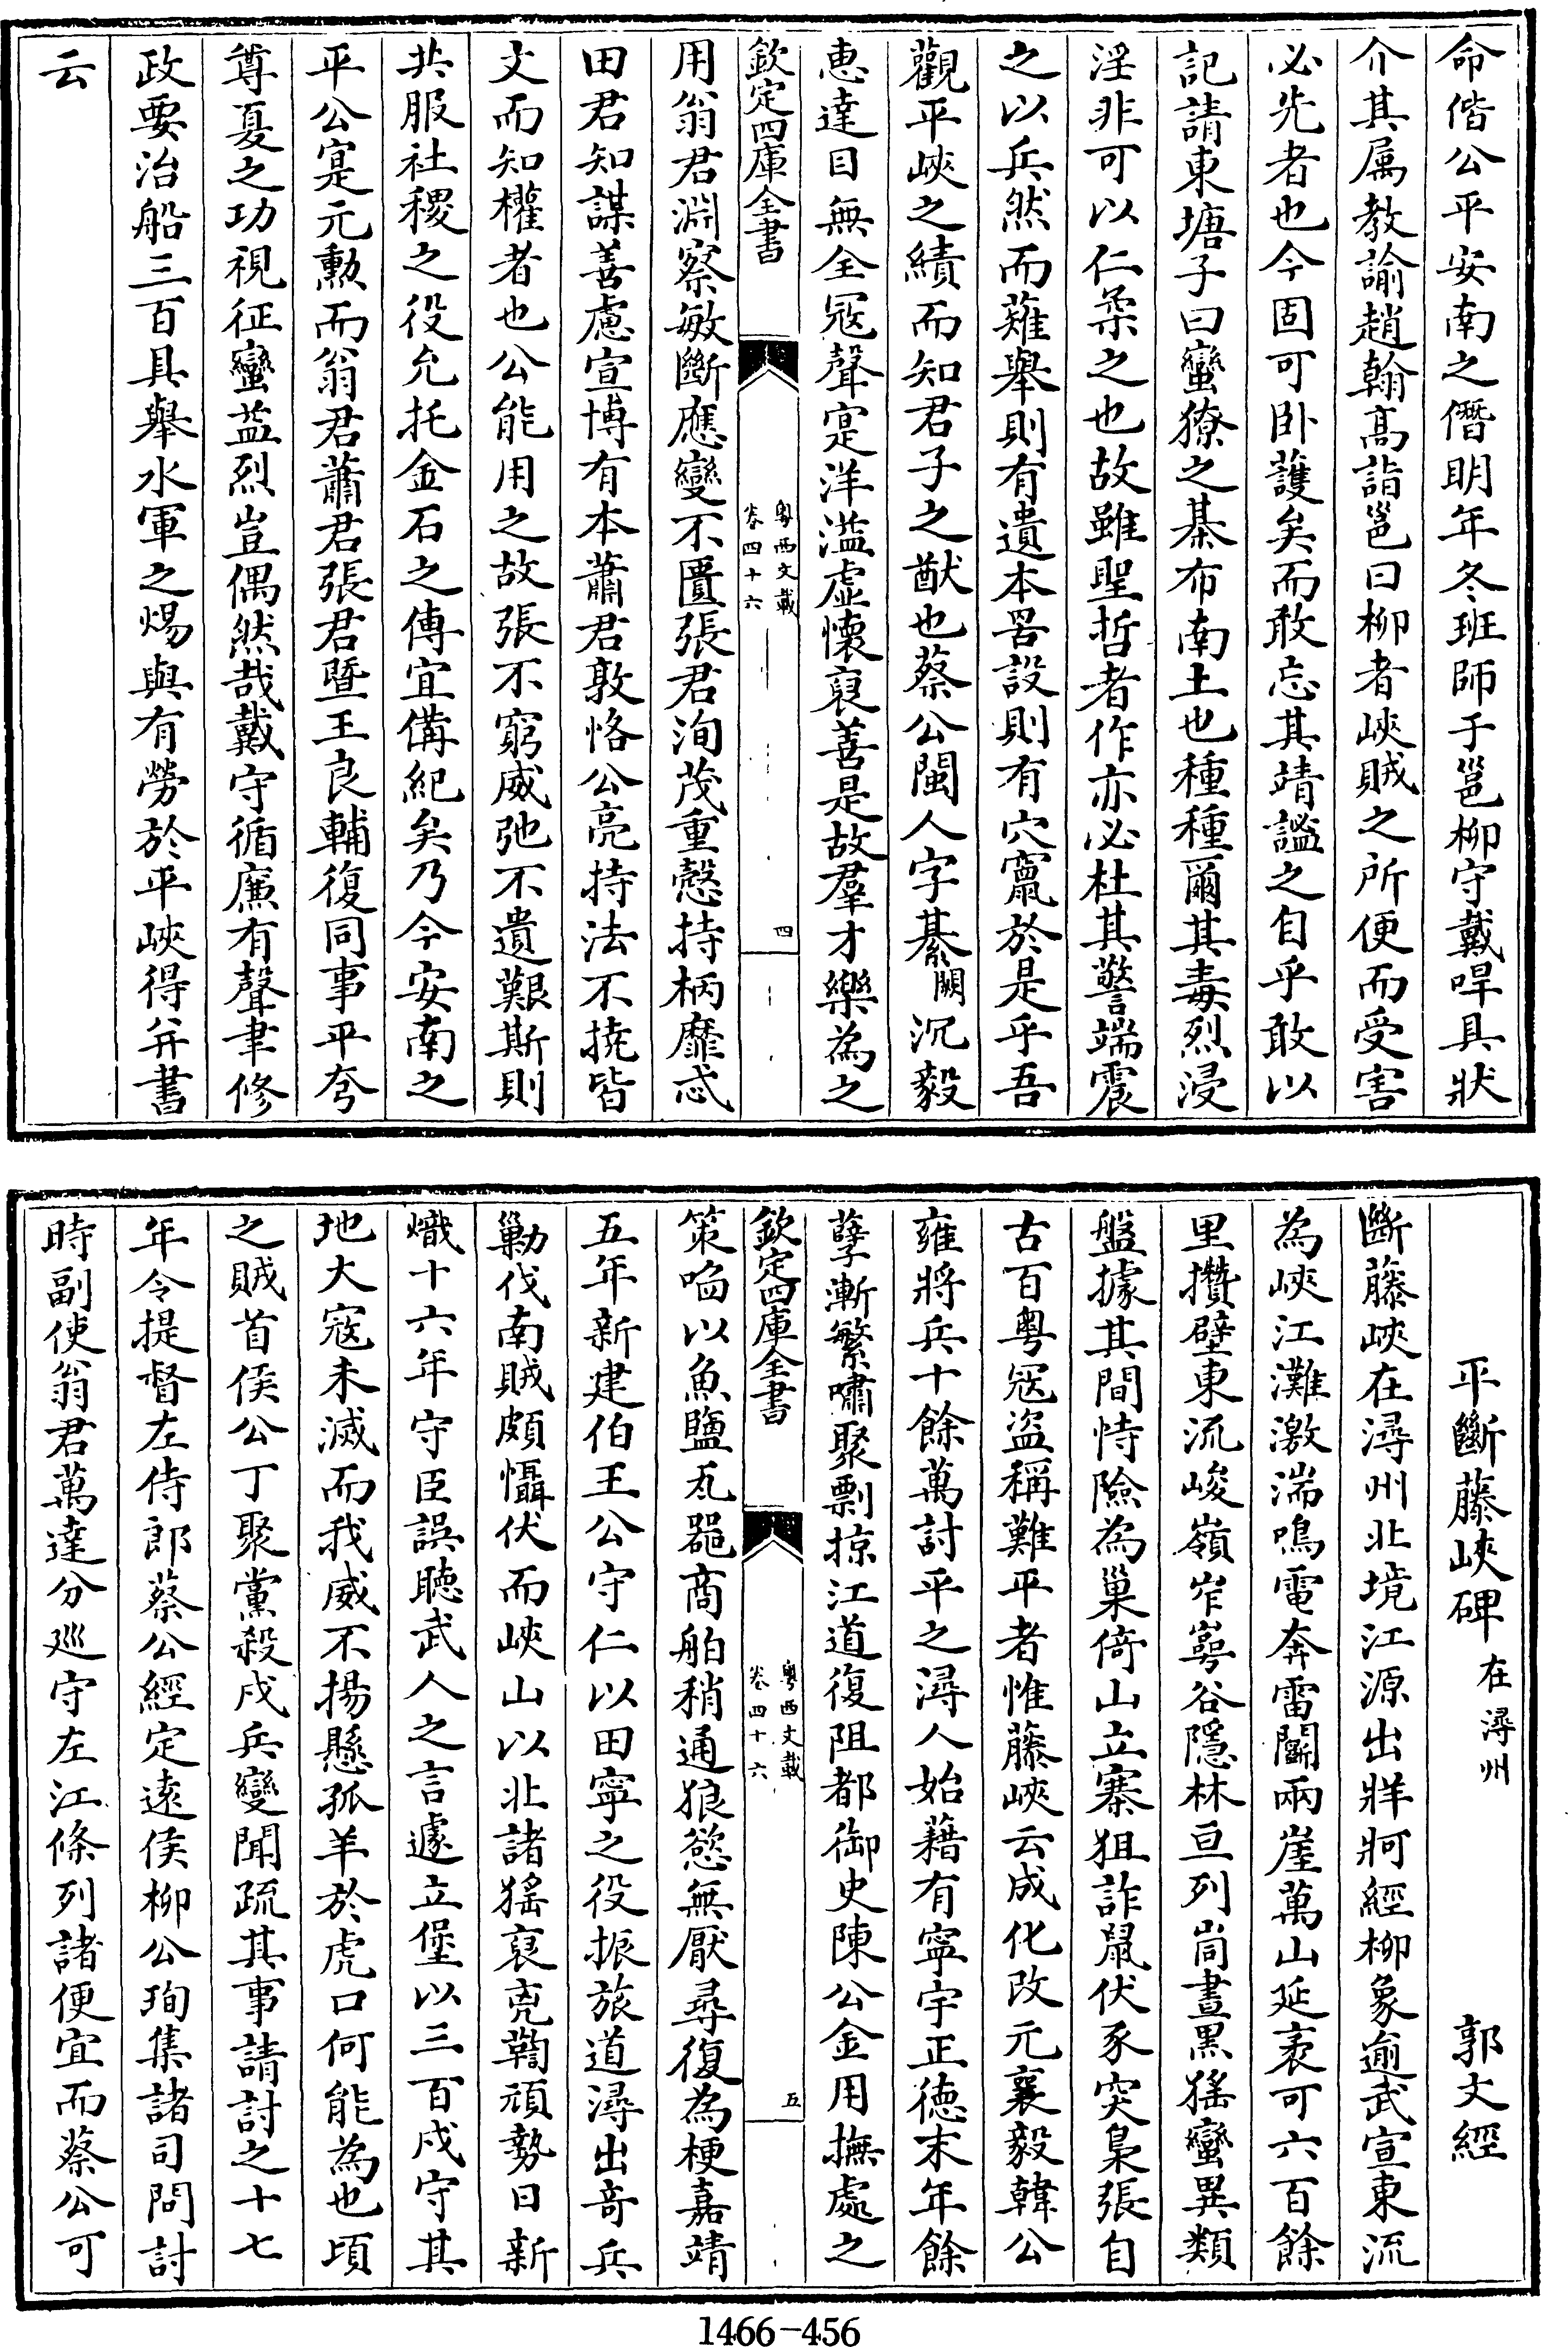 命偕公平安南之僭明年冬班師于邕柳守戴㖔具狀
介其属教諭趙翰髙詣邕曰柳者峽賊之所便而受害
必先者也今固可卧䕶矣而敢忘其靖謐之自乎敢以
記請東塘子曰蠻獠之棊布南土也種種爾其毒烈浸
淫非可以仁柔之也故雖聖哲者作亦必杜其警端震
之以兵然而薙舉則有遺本罟設則有穴竄於是乎吾
觀平峽之績而知君子之猷也蔡公閩人字綦闕沉毅
恵達目無全寇聲寔洋溢虚懷裒善是故羣才樂為之
欽定四庫全書
粤西文載
卷四十六
四
用翁君淵察敏斷應變不匱張君洵茂重慤持柄靡忒
田君知謀善慮宣博有本蕭君敦恪公亮持法不撓皆
文而知權者也公能用之故張不窮威弛不遺艱斯則
共服社稷之役允托金石之傳宜備紀矣乃今安南之
平公寔元勳而翁君蕭君張君暨王良輔復同事平夸
尊夏之功視征蠻益烈豈偶然哉戴守循廉有聲聿修
政要治船三百具舉水軍之煬與有勞於平峽得并書
云
平斷藤峽碑 在潯州 郭文經
斷藤峽在潯州北境江源出牂牁經柳象逾武宣東流
為峽江灘激湍鳴電奔雷鬭兩崖萬山延袤可六百餘
里攢壁東流峻嶺岝崿谷隱林亘列峝晝黒猺蠻異類
盤據其間恃險為巢倚山立寨狙詐鼠伏豕突梟張自
古百粤寇盗稱難平者惟藤峽云成化改元襄毅韓公
雍將兵十餘萬討平之潯人始藉有寧宇正徳末年餘
孽漸繁嘯聚剽掠江道復阻都御史陳公金用撫處之
欽定四庫全書
粤西文載
卷四十六
五
策啗以魚鹽瓦噐商舶稍通狼慾無厭尋復為梗嘉靖
五年新建伯王公守仁以田寧之役振旅道潯出竒兵
勦伐南賊頗懾伏而峽山以北諸猺裒兇鞫頑勢日新
熾十六年守臣誤聴武人之言遽立堡以三百戍守其
地大寇未滅而我威不揚懸孤羊於虎口何能為也頃
之賊首侯公丁聚黨殺戍兵變聞疏其事請討之十七
年令提督左侍郎蔡公經定逺侯柳公珣集諸司問討
時副使翁君萬達分廵守左江條列諸便宜而蔡公可
1466-456